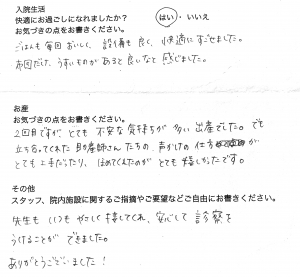 入院生活
快適にお過ごしになれましたか? はい ・ いいえ
お気づきの点をお書きください。
ごはんも毎日おいしく、設備も良く、快適にすごせました。
布団だけ、うすいものがあると良いなと感じました。
お産
お気づきの点をお書きください。
2回目ですが、とても不安な気持ちが多い出産でした。でも
立ち会ってくれた助産師さんたちの声がけの仕方が
とても上手だったり、ほめてくんだのがとても嬉しかったです。
その他
スタッフ、院内施設に関するご指摘やご要望などご自由にお書きください。
先生もいつもやさしく接してくれ、安心して診察を
うけることができました。
ありがとうございました!